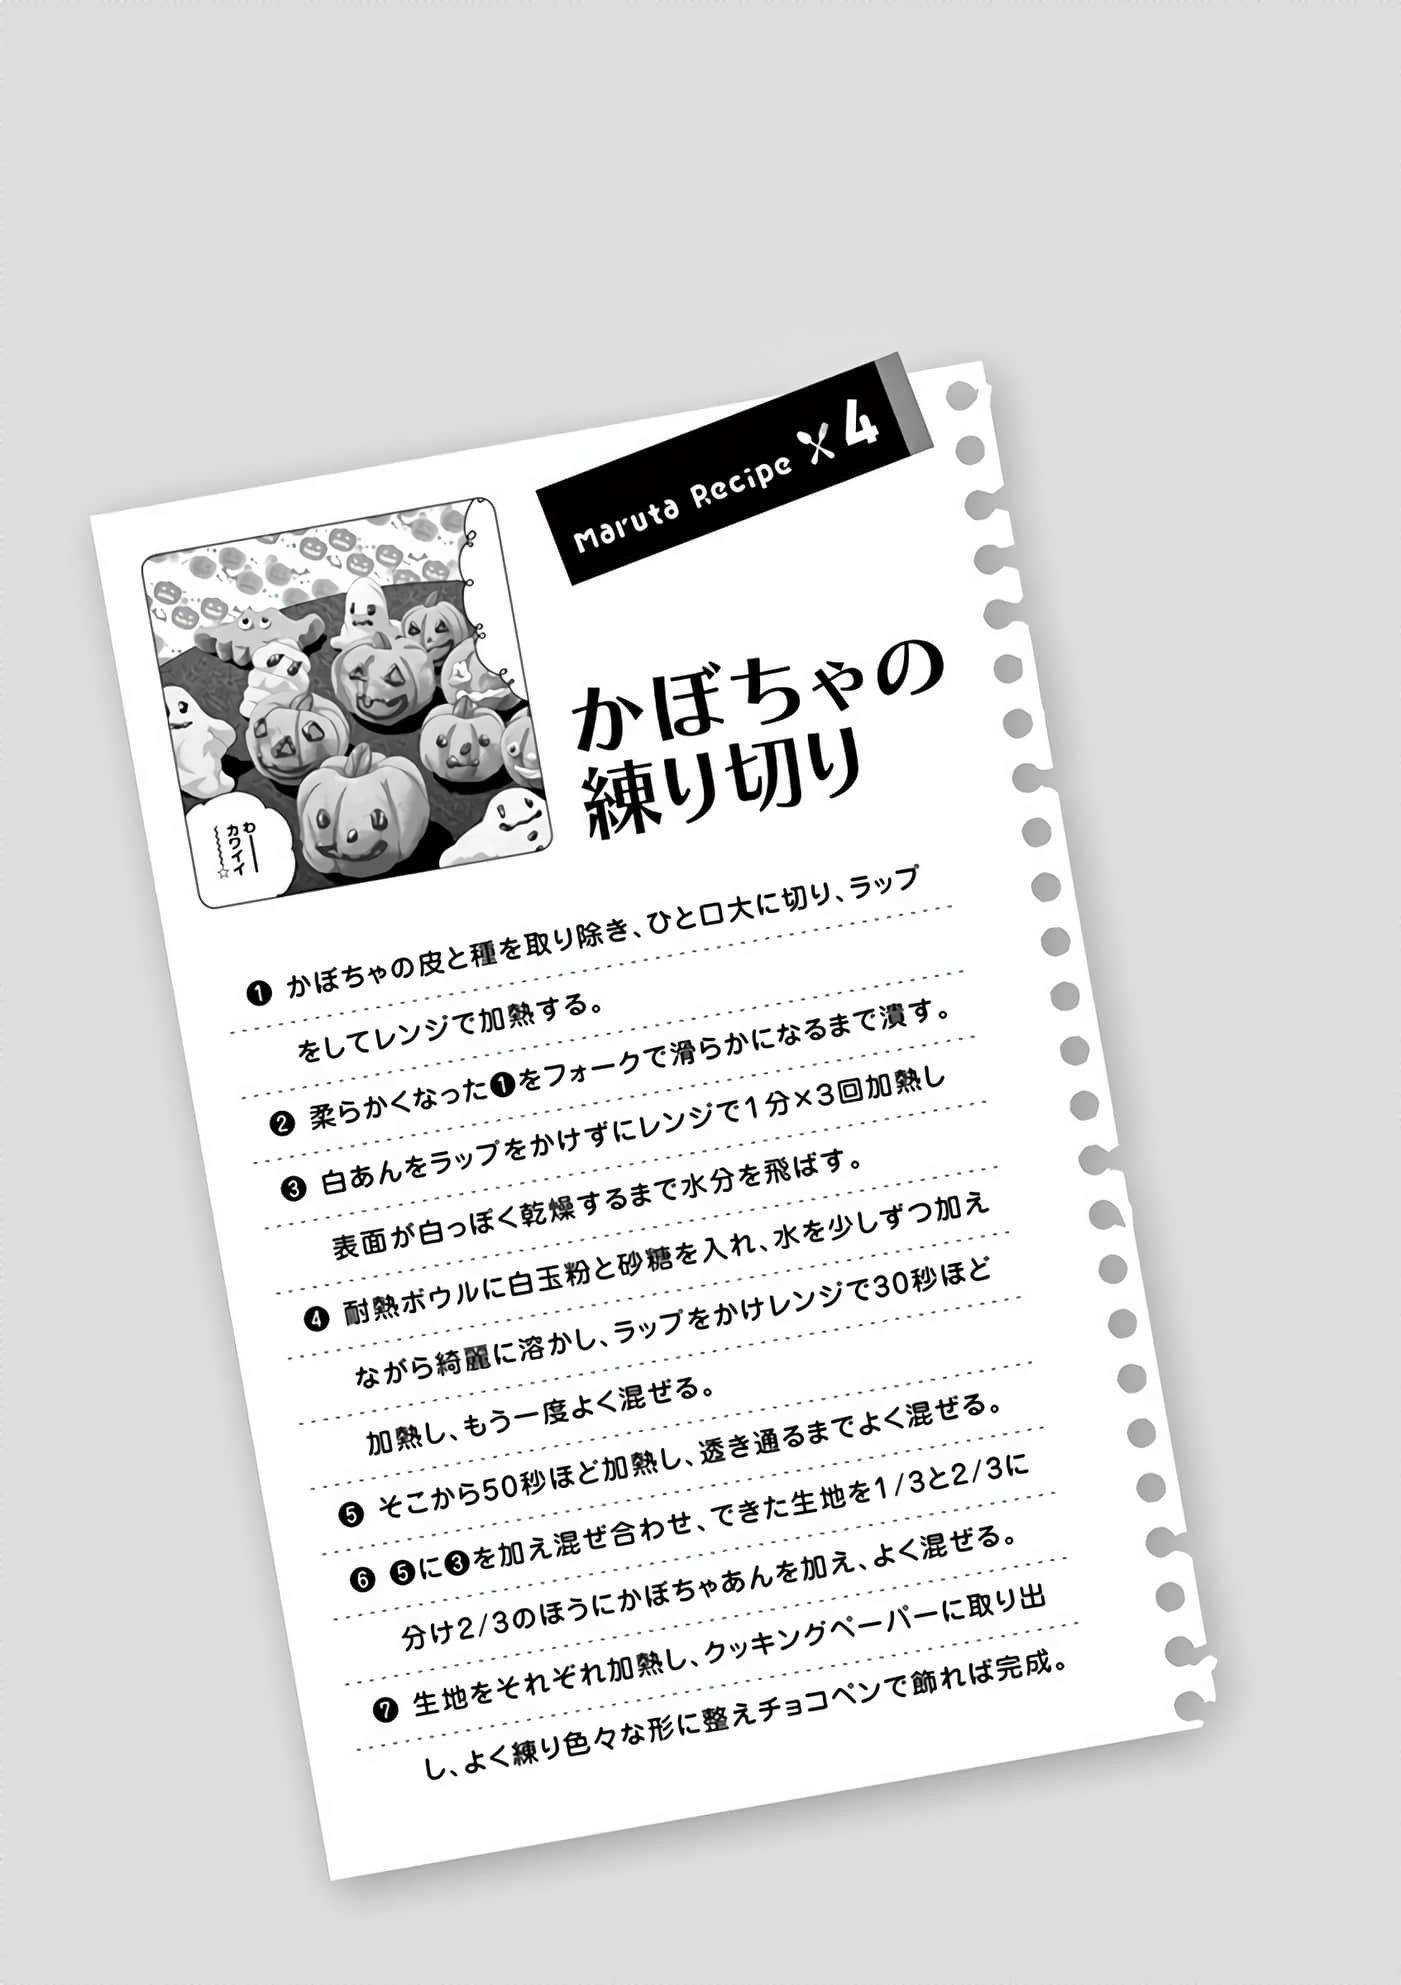 Maruta Recipe 4
かぼちゃの
練り切り
わー
カワイイ
〜〜☆
❶ かぼちゃの皮と種を取り除き、ひと口大に切り、ラップ
をしてレンジで加熱する。
❷ 柔らかくなった❶をフォークで滑らかになるまで潰す。
❸ 白あんをラップをかけずにレンジで1分×3回加熱し
表面が白っぽく乾燥するまで水分を飛ばす。
❹ 耐熱ボウルに白玉粉と砂糖を入れ、水を少しずつ加え
ながら綺麗に溶かし、ラップをかけレンジで30秒ほど
加熱し、もう一度よく混ぜる。
❺ そこから50秒ほど加熱し、透き通るまでよく混ぜる。
❻ ❺に❸を加え混ぜ合わせ、できた生地を1/3と2/3に
分け2/3のほうにかぼちゃあんを加え、よく混ぜる。
❼ 生地をそれぞれ加熱し、クッキングペーパーに取り出
し、よく練り色々な形に整えチョコペンで飾れば完成。